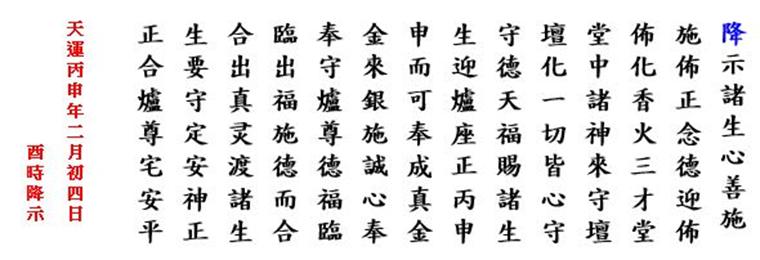 降示諸生心善施
施佈正念德迎佈
佈化香火三才堂
堂中諸神來守壇
壇化一切皆心守
守德天福賜諸生
生迎爐座正丙申
申而可奉成真金
金來銀施誠心奉
奉守爐尊德福臨
臨出福施德而合
合出真灵渡諸生
生要守定安神正
正合爐尊宅安平
天運丙申年二月初四日
酉時降示